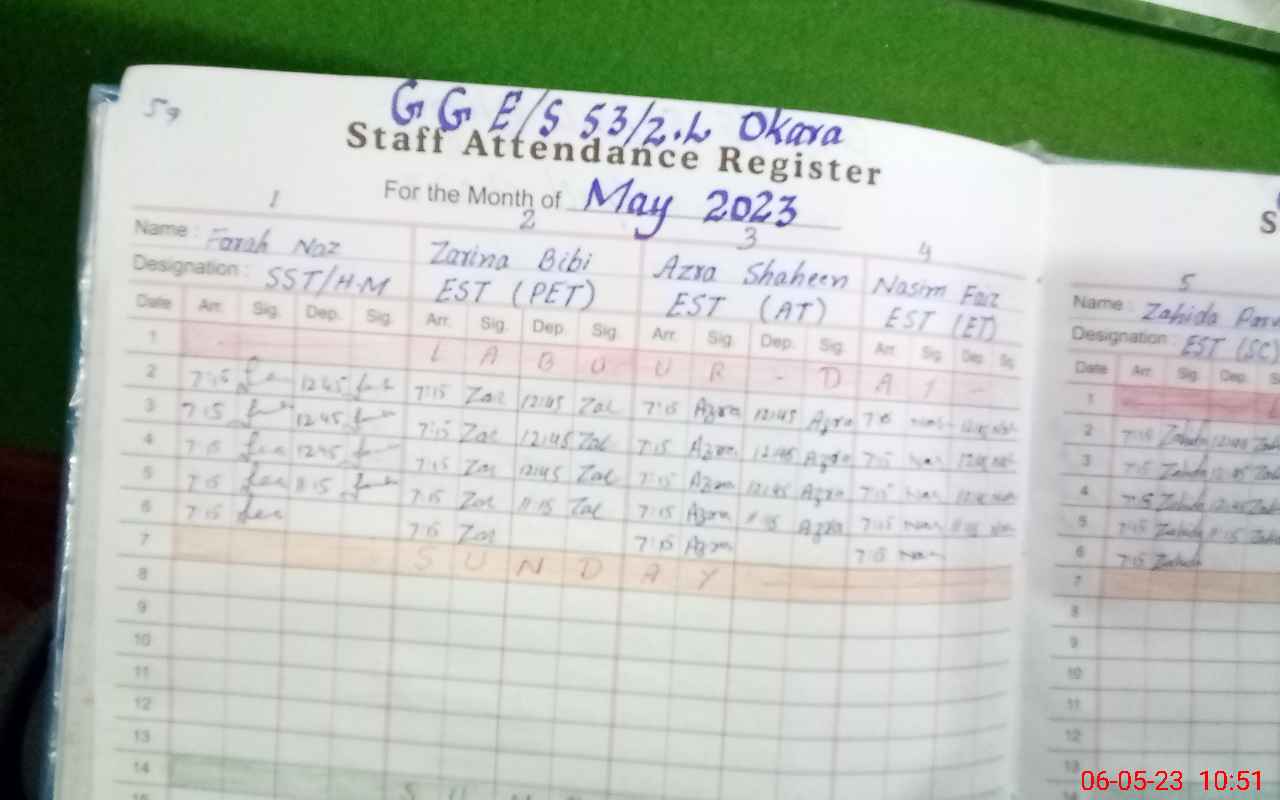 59
G G E/S 53/2.L Okara
Staff Attendance Register
For the Month of May 2023
1 2 3 4
Name : Farah Naz Zarina Bibi Azra Shaheen Nasim Faiz
Designation : SST/H.M EST (PET) EST (AT) EST (ET)
Date Arr. Sig. Dep. Sig. Arr. Sig. Dep. Sig. Arr. Sig. Dep. Sig. Arr. Sig. Dep. Sig.
1 L A B O U R - D A Y -
2 7:15 12:45 7:15 Zar 12:45 Zar 7:15 Azra 12:45 Azra
3 7:15 12:45 7:15 Zar 12:45 Zar 7:15 Azra 12:45 Azra 7:15
4 7:15 12:45 7:15 Zar 12:45 Zar 7:15 Azra 12:45 Azra 7:15
5 7:15 11:15 7:15 Zar 11:15 Zar 7:15 Azra 11:15 Azra 7:15
6 7:15 7:15 Zar 7:15 Azra 7:15
7 S U N D A Y
8
9
10
11
12
13
14 S U N
15
S
5
Name : Zahida
Designation : EST (SC)
Date Arr. Sig. Dep. S
1 L
2 7:15 Zahida 12:45
3 7:15 Zahida 12:45
4 7:15 Zahida 12:45
5 7:15 Zahida 11:15
6 7:15 Zahida
7
8
9
10
11
12
13
06-05-23 10:51